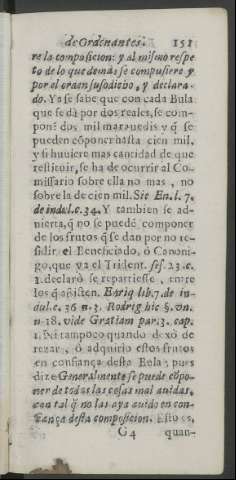 de Ordenantes. 151
re la composicion: y al mismo respe
to de lo que demàs se compusiere y
por el orden susodicho, y declara-
do. Ya se sabe que con cada Bula
que se dà por dos reales, se com-
ponē dos mil marauedis y q̃ se
pueden cõponer hasta cien mil,
y si huuiere mas cantidad de que
restituir, se ha de ocurrir al Co-
missario sobre ella no mas, no
sobre la de cien mil. Sic En. l. 7.
de indul. c. 34. Y tambien se ad-
uierta, q̃ no se puedē componer
de los frutos q̃ se dan por no re-
sidir el Beneficiado, ò Canoni-
go, que ya el Trident. ses. 23. c.
1. declarò se repartiesse, entre
los q̃ assisten. Enriq lib. 7. de in-
dul. c. 36 n 3. Rodrig hic §. vn.
n 18. vide Gratiam par. 3. cap.
1. Ni tampoco quando dexò de
rezar, ò adquirio estos frutos
en confiança desta Bula; pues
dize Generalmente se puede cõpo-
ner de todas las cosas mal auidas,
con tal q̃ no las aya auido en con-
fiança desta composicion. Esto es,
G 4 quan-